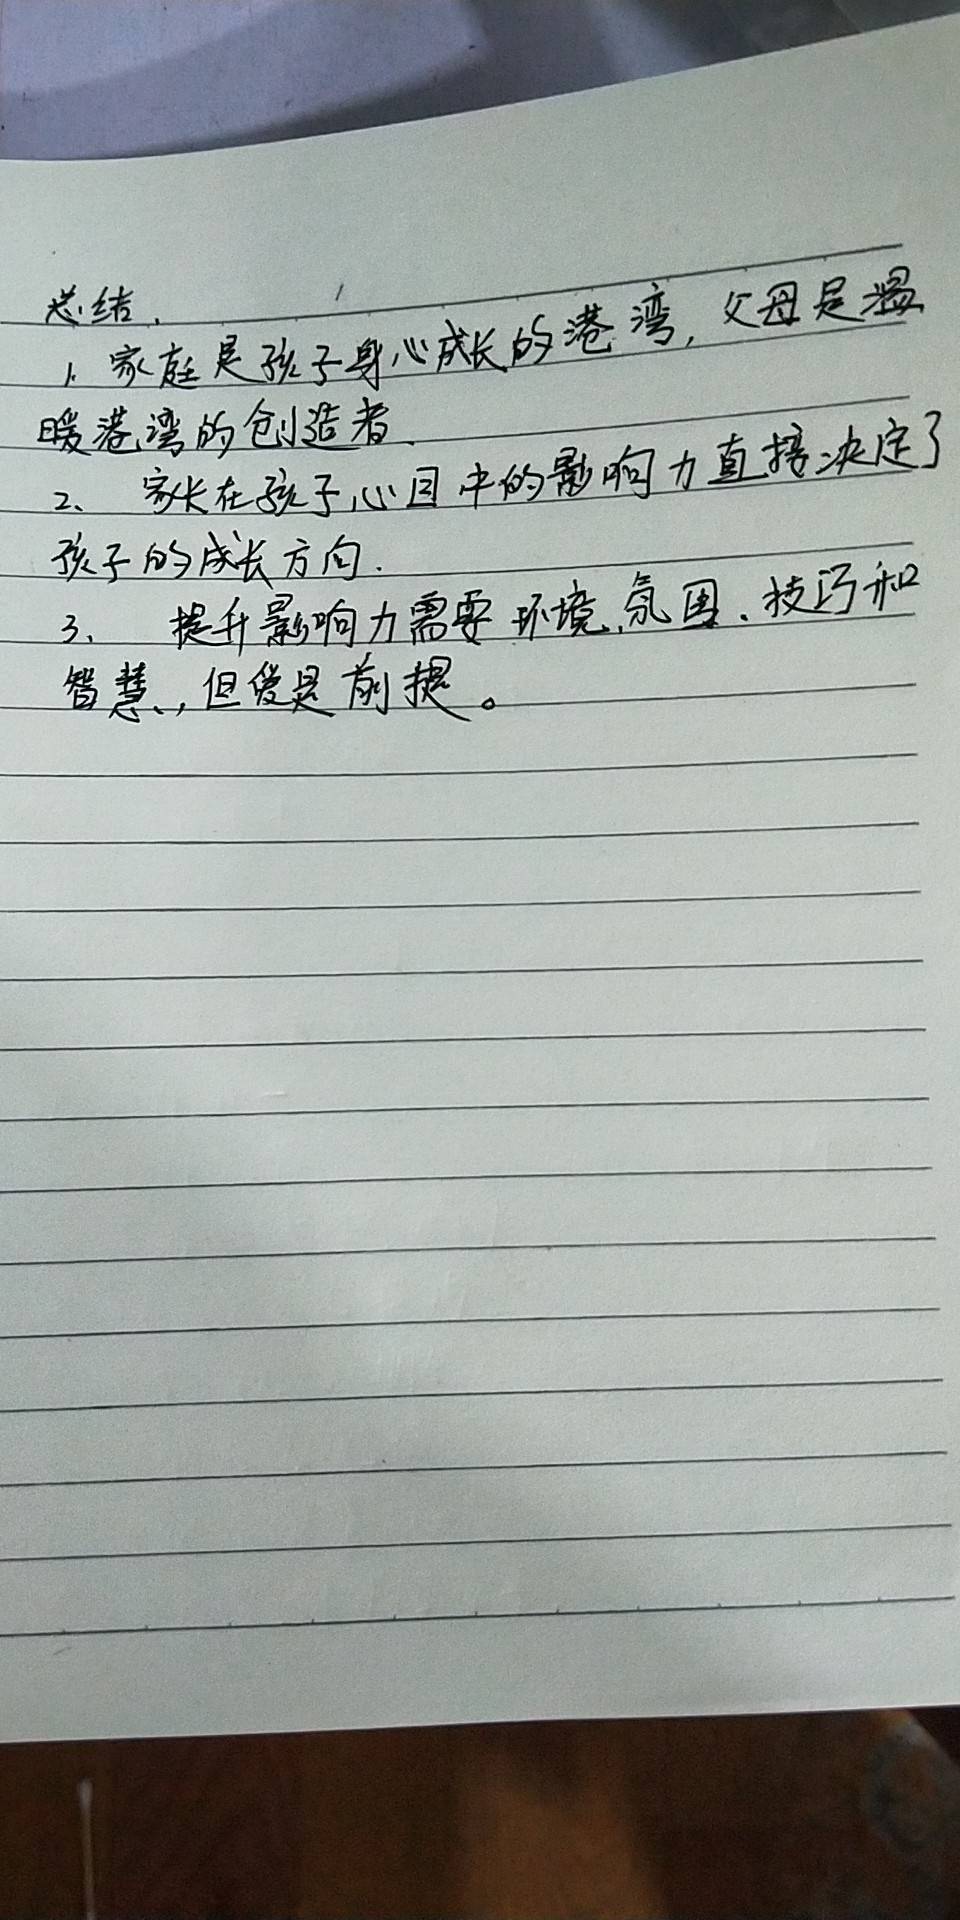 总结.
1. 家庭是孩子身心成长的港湾，父母是温
暖港湾的创造者.
2、 家长在孩子心目中的影响力直接决定了
孩子的成长方向.
3、 提升影响力需要环境、氛围、技巧和
智慧、，但爱是前提。